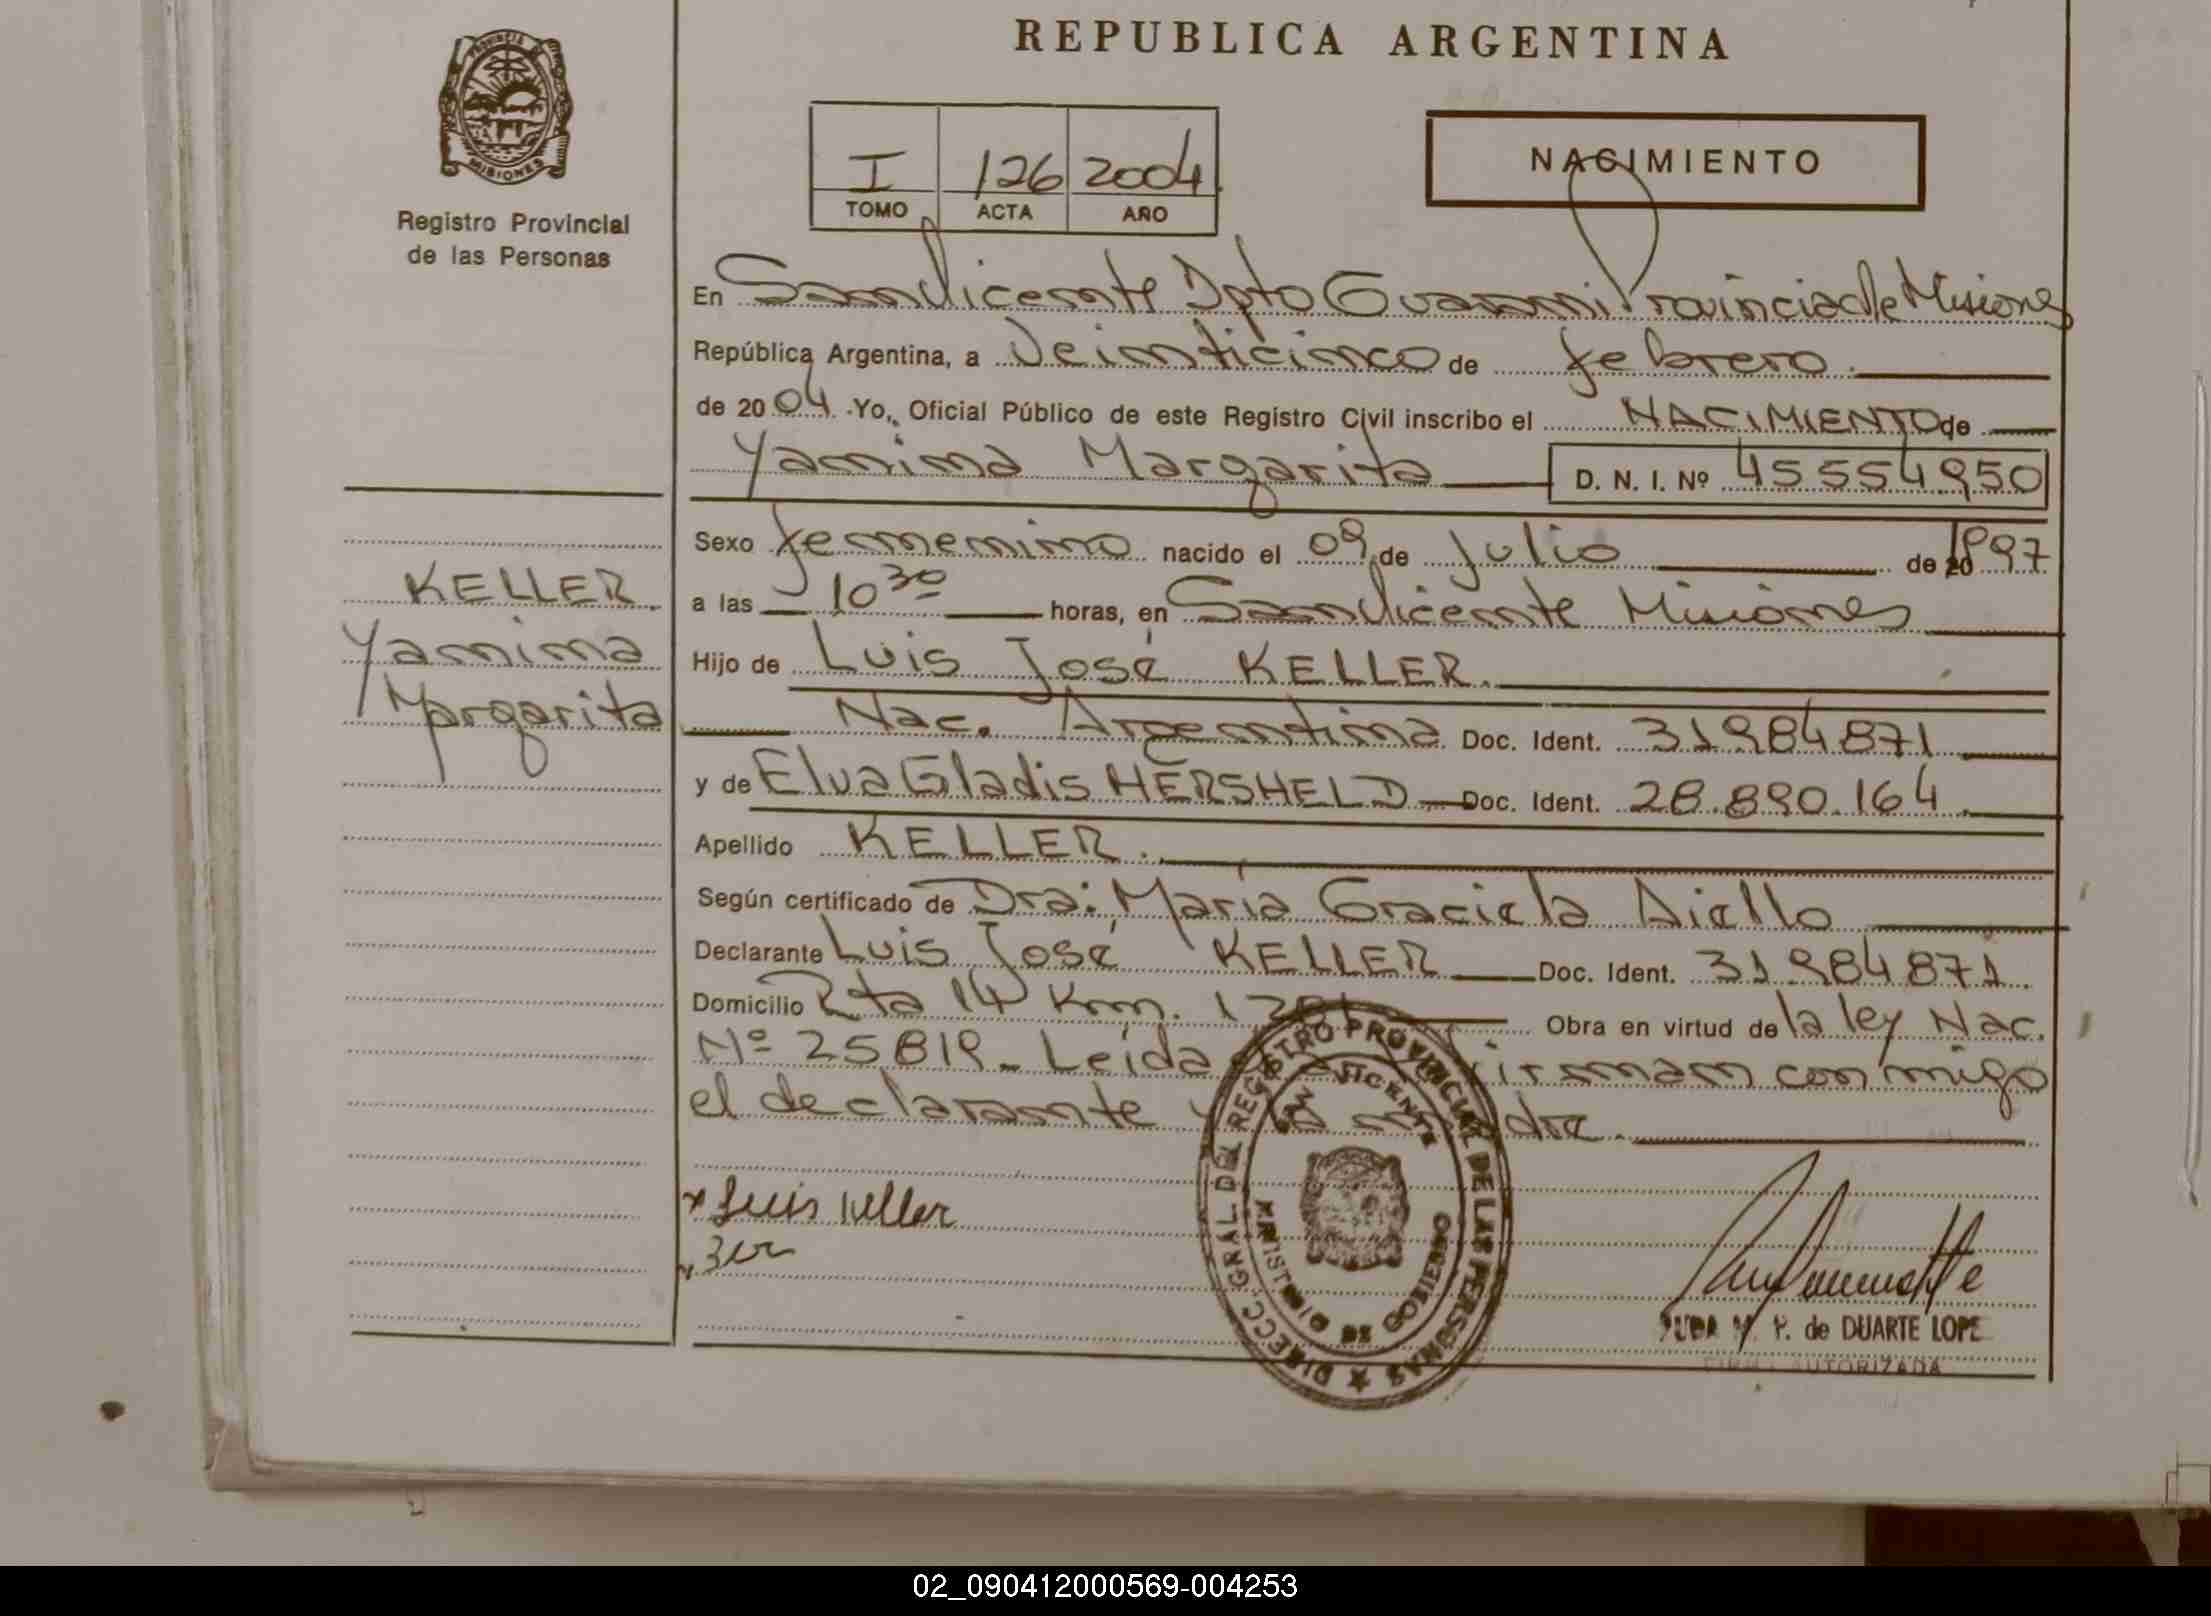 REPUBLICA ARGENTINA
PROVINCIA DE
MISIONES
Registro Provincial
de las Personas
I 126 2004
TOMO ACTA AÑO
NACIMIENTO
En San Vicente Dpto Guarani Provincia de Misiones
República Argentina, a Veinticinco de febrero.
de 2004. Yo, Oficial Público de este Registro Civil inscribo el NACIMIENTO de
Yanina Margarita D. N. I. Nº 45554950
Sexo femenino nacido el 09 de Julio de 1997
a las 10 30 horas, en San Vicente Misiones
Hijo de Luis José KELLER.
Nac. Argentina. Doc. Ident. 31984871
y de Elva Gladis HERSHELD Doc. Ident. 28.890.164
Apellido KELLER.
Según certificado de Dra: María Graciela Aiello
Declarante Luis José KELLER Doc. Ident. 31984871.
Domicilio Rta 14 Km. Obra en virtud de la ley Nac.
Nº 25819_ Leída firman conmigo
el declarante y la madre.
KELLER.
Yanina
Margarita
x Luis Keller
DIRECC. GRAL DEL REGISTRO PROVINCIAL DE LAS PERSONAS
SAN VICENTE
MINISTERIO DE GOBIERNO
de DUARTE LOPE
FIRMA AUTORIZADA
02_090412000569-004253